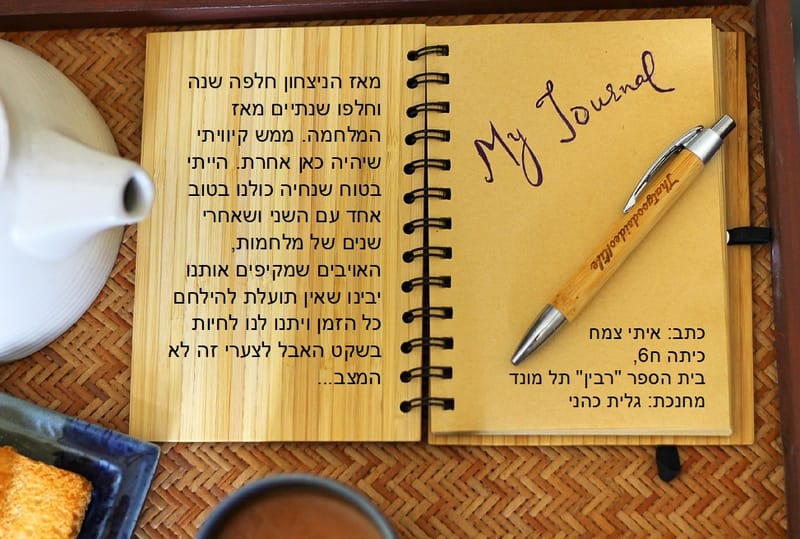 מאז הניצחון חלפה שנה
וחלפו שנתיים מאז
המלחמה. ממש קיוויתי
שיהיה כאן אחרת. הייתי
בטוח שנחיה כולנו בטוב
אחד עם השני ושאחרי
שנים של מלחמות,
האויבים שמקיפים אותנו
יבינו שאין תועלת להילחם
כל הזמן ויתנו לנו לחיות
בשקט האבל לצערי זה לא
המצב...
My Journal
Thatgoodsideoflife
כתב: איתי צמח
כיתה ח6,
בית הספר "רבין" תל מונד
מחנכת: גלית כהני